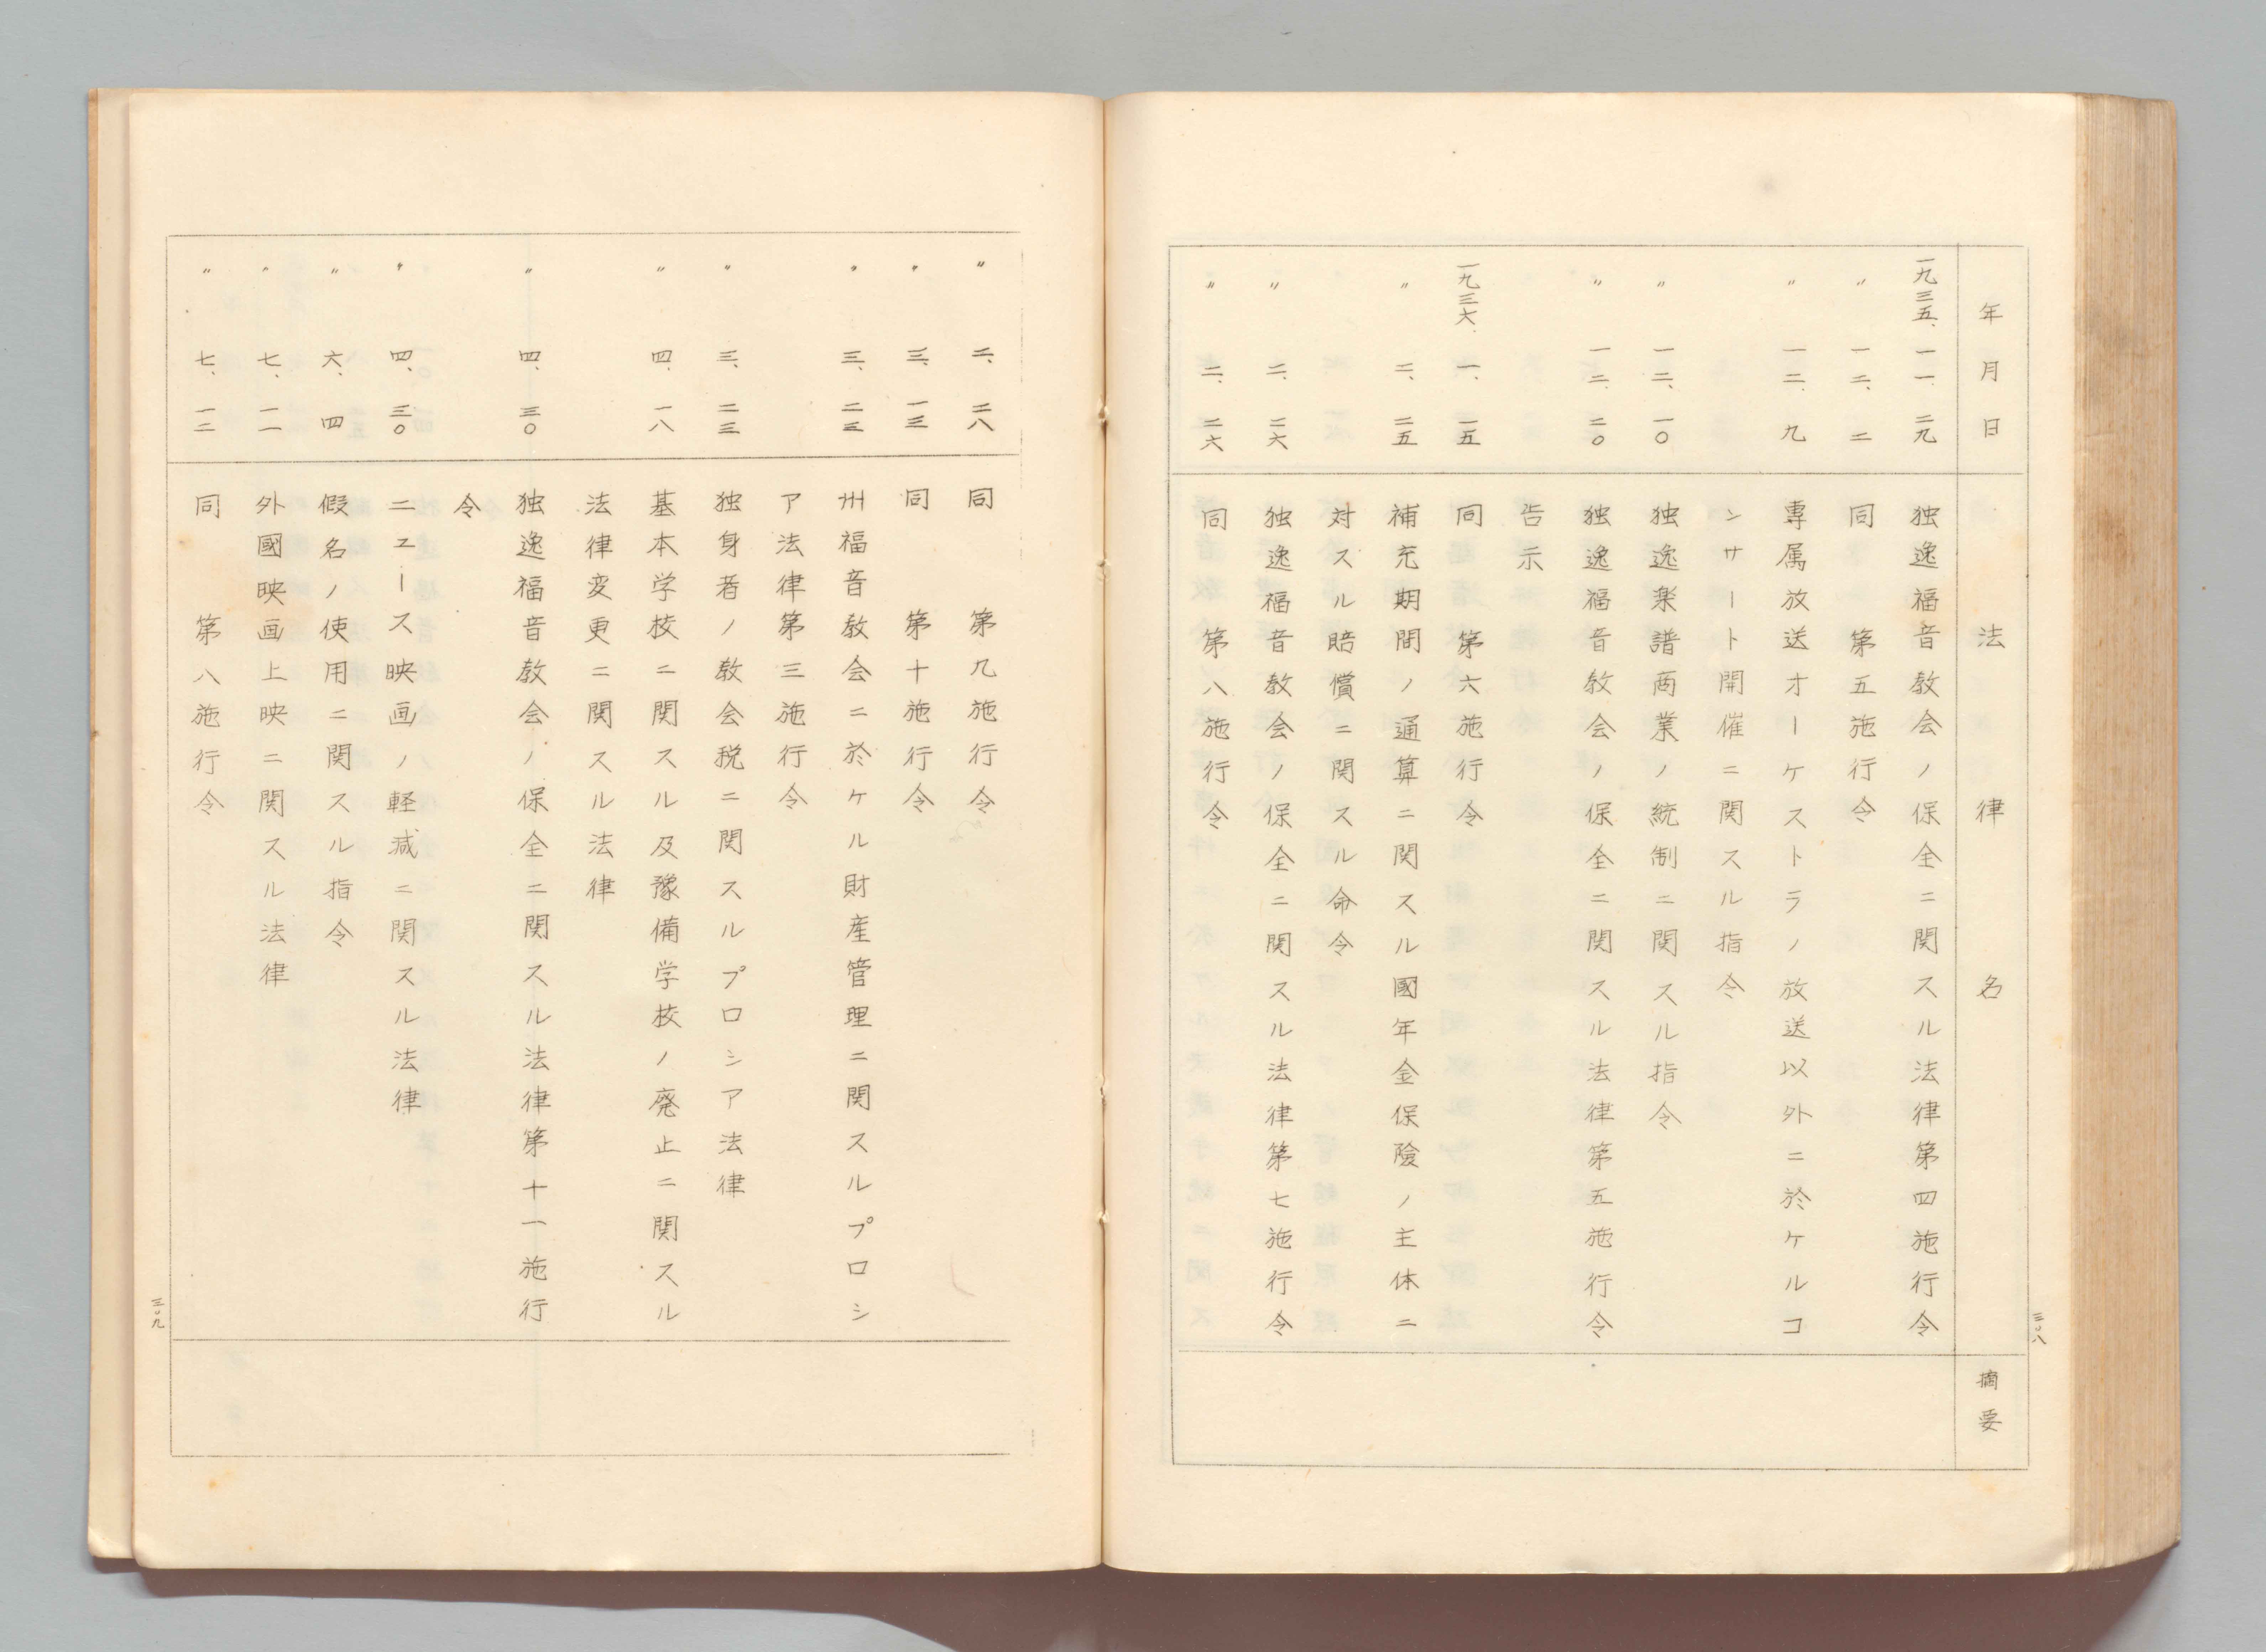 年月日 法律名 摘要
一九三五、一一、二九 独逸福音教会ノ保全ニ関スル法律第四施行令
〃 一二、二 同 第五施行令
〃 一二、九 専属放送オーケストラノ放送以外ニ於ケルコ
ンサート開催ニ関スル指令
〃 一二、一〇 独逸楽譜商業ノ統制ニ関スル指令
〃 一二、二〇 独逸福音教会ノ保全ニ関スル法律第五施行令
告示
一九三六、一、一五 同 第六施行令
〃 二、二五 補充期間ノ通算ニ関スル國年金保険ノ主体ニ
対スル賠償ニ関スル命令
〃 二、二六 独逸福音教会ノ保全ニ関スル法律第七施行令
〃 二、二六 同 第八施行令
三〇八
〃 二、二八 同 第九施行令
〃 三、一三 同 第十施行令
〃 三、二三 州福音教会ニ於ケル財産管理ニ関スルプロシ
ア法律第三施行令
〃 三、二三 独身者ノ教会税ニ関スルプロシア法律
〃 四、一八 基本学校ニ関スル及豫備学校ノ廃止ニ関スル
法律変更ニ関スル法律
〃 四、三〇 独逸福音教会ノ保全ニ関スル法律第十一施行
令
〃 四、三〇 ニュース映画ノ軽減ニ関スル法律
〃 六、四 假名ノ使用ニ関スル指令
〃 七、一一 外國映画上映ニ関スル法律
〃 七、一二 同 第八施行令
三〇九